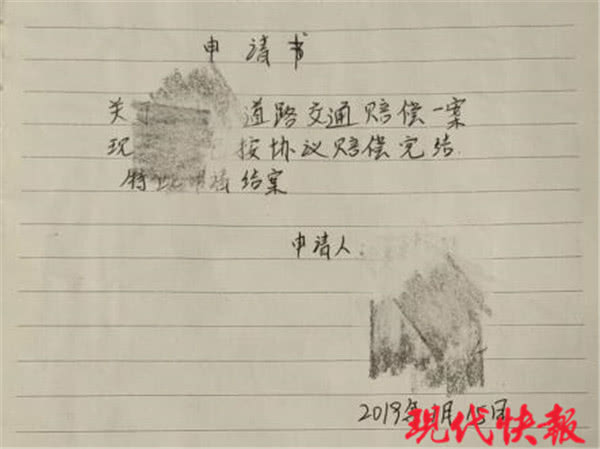 申请书
关于 道路交通赔偿一案
现 按协议赔偿完结.
特此申请结案
申请人:
2019年 月15日
现代快报